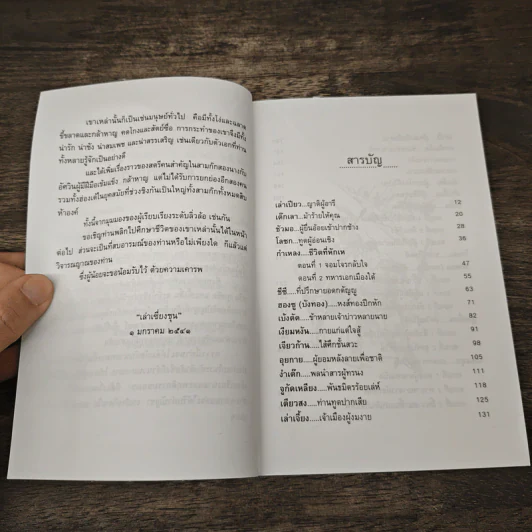 เขาเหล่านั้นก็เป็นเช่นมนุษย์ทั่วไป คือมีทั้งโง่และฉลาด
ขี้ขลาดและกล้าหาญ คดโกงและสัตย์ซื่อ การกระทำของเขาจึงมีทั้ง
น่ารัก น่าชัง น่าสมเพช และน่าสรรเสริญ เช่นเดียวกับตัวเอกที่ท่าน
ทั้งหลายรู้จักเป็นอย่างดี
และได้เพิ่มเรื่องราวของสตรีคนสำคัญในสามก๊กสองนางกับ
อัศวินผู้มีฝีมือเข้มแข็ง กล้าหาญ แต่ไม่ได้รับการยกย่องอีกสองคน
รวมทั้งฮ่องเต้ในยุคสมัยที่ช่วงชิงกันเป็นใหญ่ทั้งสามก๊กทั้งหมดสิบ
ห้าองค์
ทั้งนี้จากมุมมองของผู้เรียบเรียงระดับลิ่วล้อ เช่นกัน
ขอเชิญท่านพลิกไปศึกษาชีวิตของเขาเหล่านั้นได้ในหน้า
ต่อไป ส่วนจะเป็นที่สบอารมณ์ของท่านหรือไม่เพียงใด ก็แล้วแต่
วิจารณญาณของท่าน
ซึ่งผู้น้อยจะขอน้อมรับไว้ ด้วยความเคารพ
"เล่าเซี่ยงชุน"
๑ มกราคม ๒๕๔๑
สารบัญ
เล่าเปียว....ญาติผู้อารี 12
เต๊กเลา....ม้าร้ายให้คุณ 20
ชัวมอ....ผู้ยืนอ้อยเข้าปากช้าง 28
โลซก....ทูตผู้อ่อนเชิง 36
กำเหลง....ชีวิตที่หักเห
ตอนที่ 1 จอมโจรกลับใจ 47
ตอนที่ 2 ทหารเอกเมืองใต้ 55
ชีซี....ที่ปรึกษายอดกตัญญู 63
ฮองซู (บังทอง)....หงส์ทองปีกหัก 71
เบ้งตัด....ข้าหลายเจ้าบ่าวหลายนาย 82
เงียมหงัน....กายแก่แต่ใจสู้ 91
เจียวก้าน....ไส้ศึกชั้นสวะ 98
อุยกาย....ผู้ยอมหลังลายเพื่อชาติ 105
งำเต๊ก....พลนำสารผู้ทรนง 111
จูกัดเหลียง....พันธมิตรร้อยเล่ห์ 118
เตียวสง....ท่านทูตปากเสีย 125
เล่าเจี้ยง....เจ้าเมืองผู้งมงาย 131